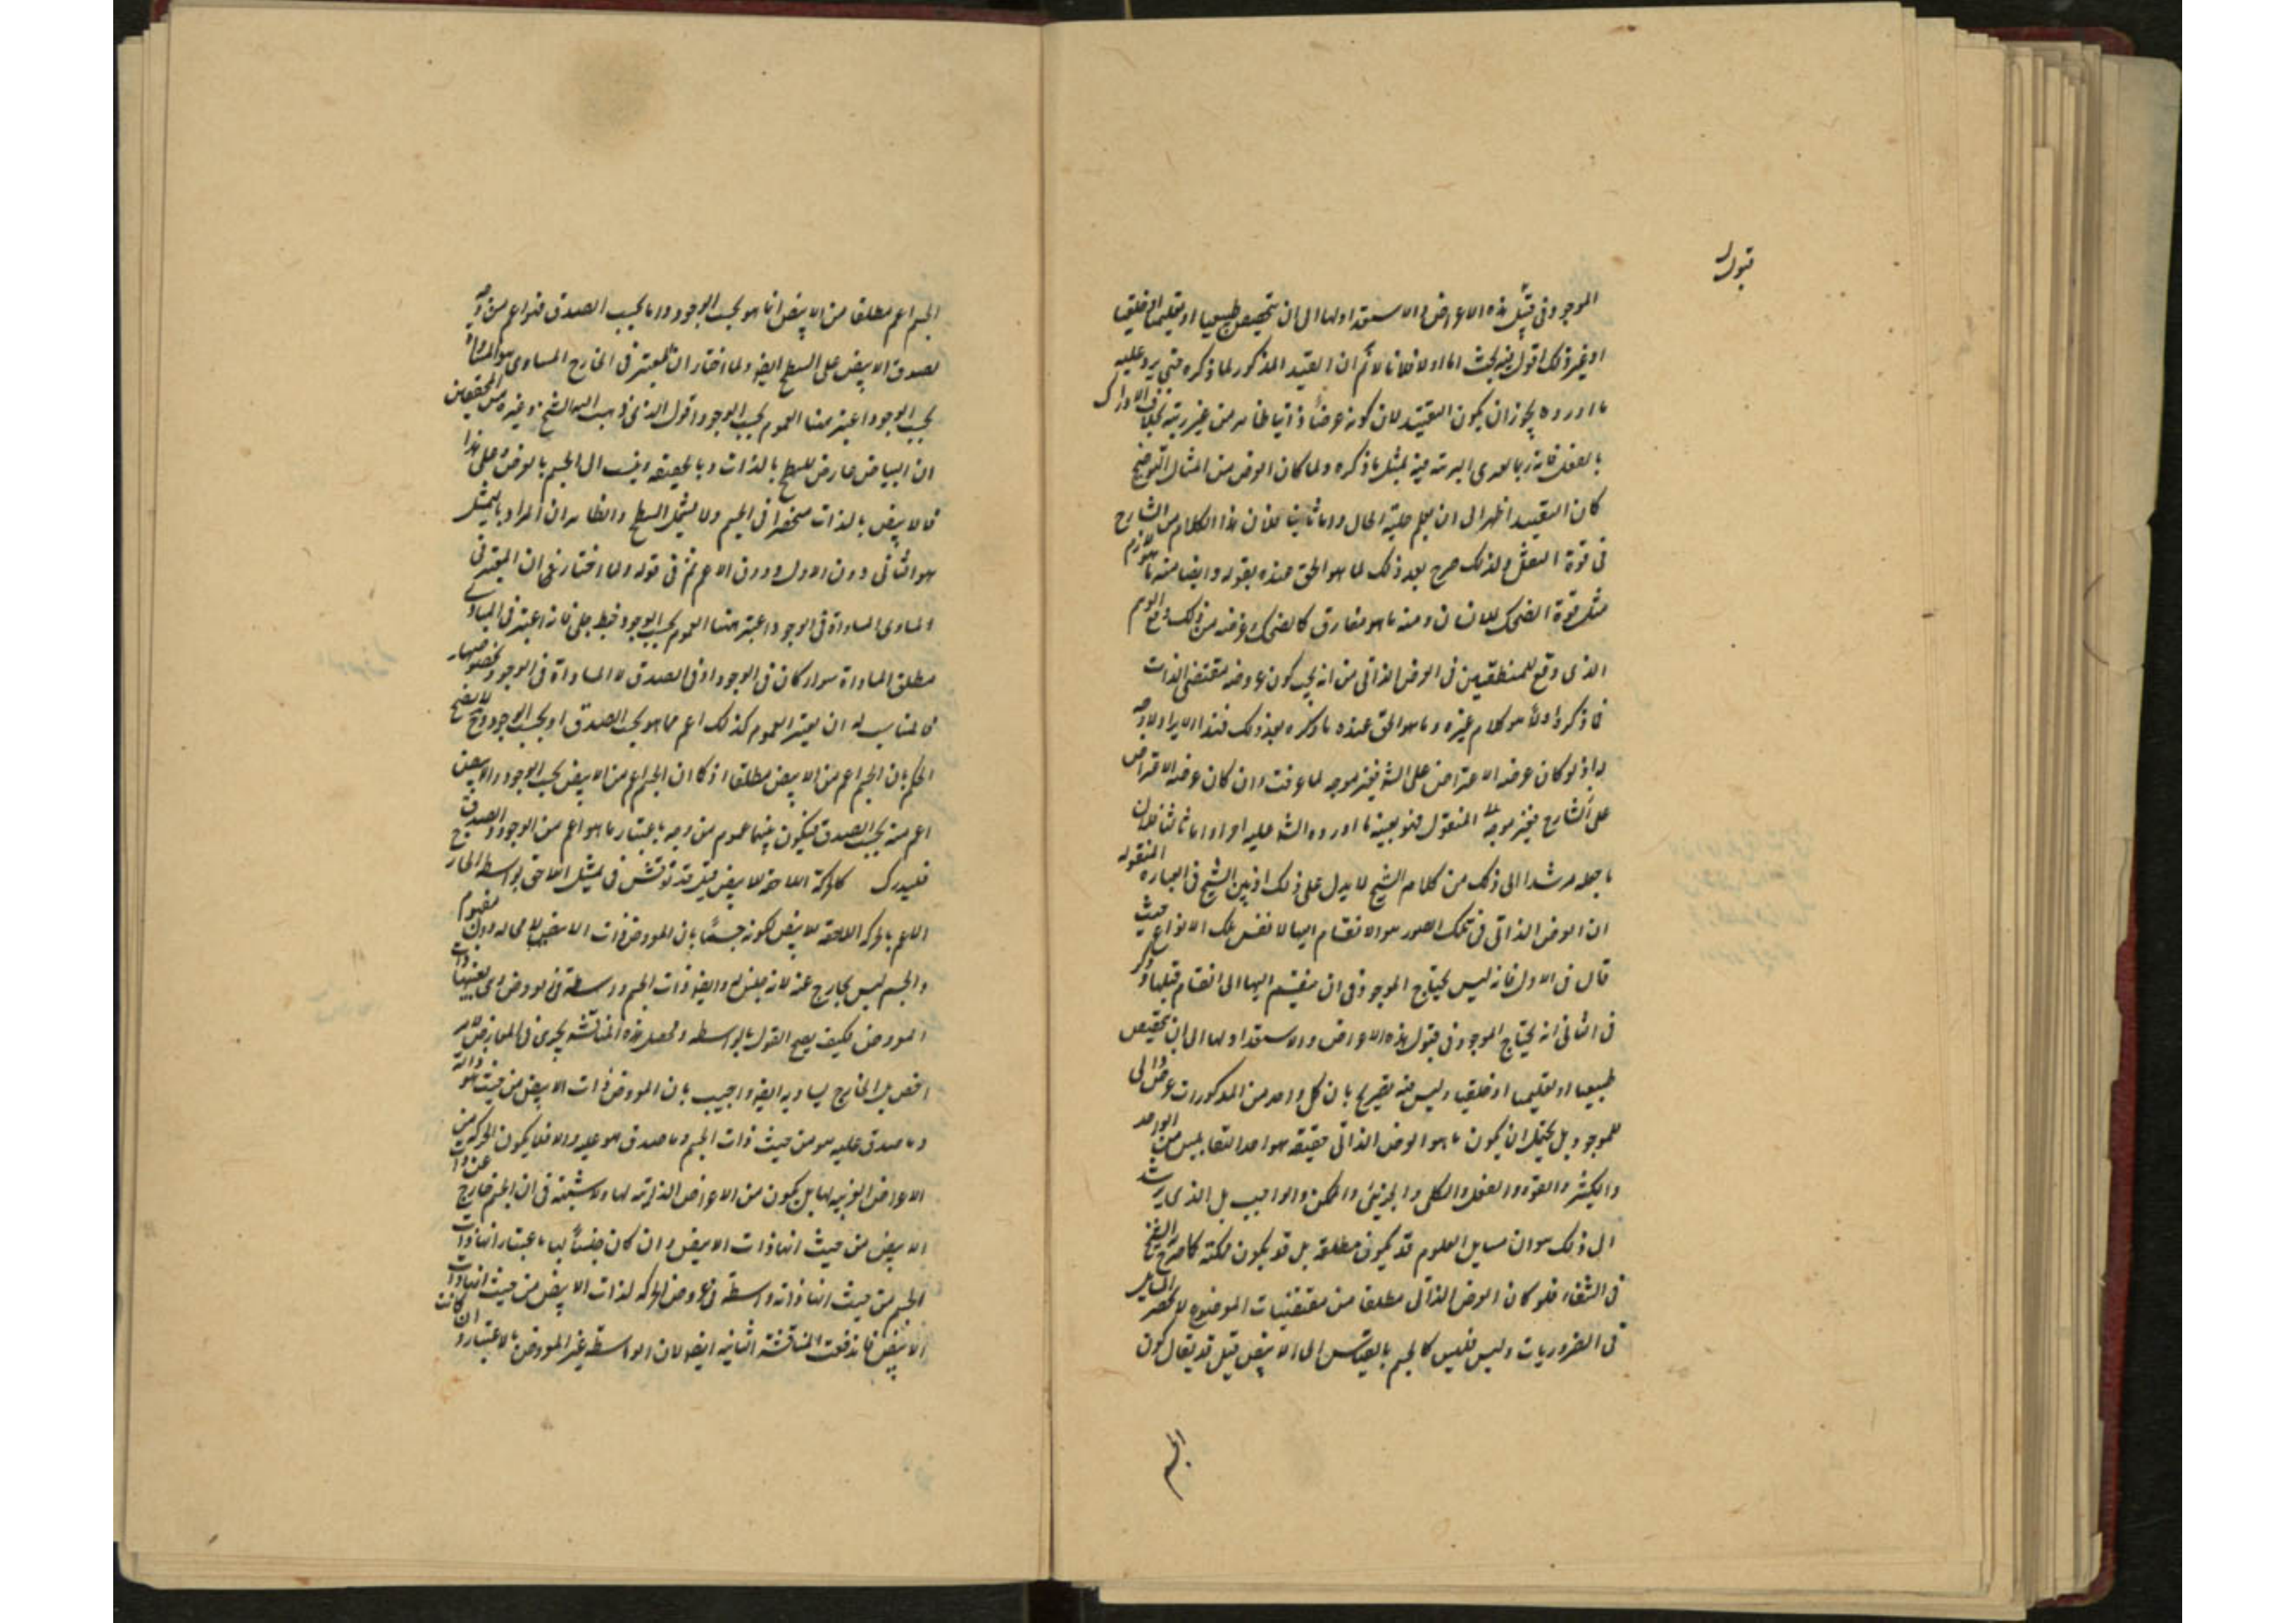 قبول
الموجود فى قبل هذه الاعراض والاستعداد لها الى ان يتخصص طبيعيا او تعليميا او خلقيا
او غير ذلك اقول فيه بحث اما اولا فلانا لا نم ان القيد المذكور لما ذكره حتى يرد عليه
ما اورده يجوز ان يكون التقييد لان كونه عرضا ذاتيا ظاهر من غير ريبة بخلاف الادراك
بالفعل فانه ربما يورى البرية فيه بمثل ما ذكره ولما كان الغرض من المثال التوضيح
كان التقييد اظهر الى ان يعلم جلية الحال واما ثانيا فلان هذا الكلام من الشارح
فى قوة التعقل ولذلك صرح بعد ذلك لما هو الحق عنده بقوله وايضا منه ما هو لازم
مثل قوة الضحك للانسان ومنه ما هو مفارق كالضحك وغرضه من ذلك دفع الوهم
الذى وقع للمنطقيين فى العرض الذاتى من انه يجب كون عروضه مقتضى الذات
فما ذكره اولا هو كلام غيره وما هو الحق عنده ما ذكره بعد ذلك فهذا الايراد لا وجه
له اذ لو كان غرضه الاعتراض على الش فغير موجه لما عرفت وان كان غرضه الاعتراض
على الشارح فغير موجه المنقول فهو بعينه ما اورده الش عليه اورد واما ثالثا فلان
ما جعله مرشدا الى ذلك من كلام الشيخ لا يدل على ذلك اذ بين الشيخ فى العبارة المنقوله
ان العرض الذاتى فى تلك الصور هو الانقسام اليها لا نفس تلك الانواع حيث
قال فى الاول فانه ليس يحتاج الموجود فى ان ينقسم اليها الى انقسام قبلها وذكر
فى الثانى انه يحتاج الموجود فى قبول هذه الاعراض والاستعداد لها الى ان يتخصص
طبيعيا او تعليميا او خلقيا وليس فيه تصريح بان كل واحد من المذكورات عرض ذاتى
للموجود بل يحتمل ان يكون ما هو العرض الذاتى حقيقة هو احد التقابلين من الواحد
والكثير والقوة والفعل والكلى والجزئى والممكن والواجب بل الذى يرشد
الى ذلك هو ان مسايل العلوم قد يكون مطلقة بل قد يكون ممكنة كما صرح به الشيخ
فى الشفاء فلو كان العرض الذاتى مطلقا من مقتضيات الموضوع لانحصر المسايل
فى الضروريات وليس فليس كالجسم بالقياس الى الابيض قيل قد يقال كون
الجسم
الجسم اعم مطلقا من الابيض انما هو بحسب الوجود واما بحسب الصدق فهو اعم من وجه
لصدق الابيض على السطح ايضا ولما اختار ان المعتبر فى الخارج المساوى هو المساواة
بحسب الوجود اعتبر هنا العموم بحسب الوجود اقول الذى ذهب اليه الشيخ وغيره من المحققين
ان البياض عارض للسطح بالذات وبالحقيقة وينسب الى الجسم بالعرض وعلى هذا
فالابيض بالذات منحصر فى الجسم ولا يشمل السطح والظاهر ان المراد بالتمثيل
هو الثانى دون الاول ودون الاعم ثم فى قوله ولما اختار فى ان المعتبر فى
المساوى المساواة فى الوجود اعتبر هنا العموم بحسب الوجود خبط جلى فانه اعتبر فى المساوى
مطلق المساواة سواء كان فى الوجود او فى الصدق لا المساواة فى الوجود بخصوصها
فالمناسب له ان يعتبر العموم كذلك اعم مما هو بحسب الصدق او بحسب الوجود وح لا يصح
الحكم بان الجسم اعم من الابيض مطلقا اذ كان الجسم اعم من الابيض بحسب الوجود والابيض
اعم منه بحسب الصدق فيكون بينهما عموم من وجه باعتبار ما هو اعم من الوجود والصدق
فليدرك كالحركة اللاحقة للابيض قيل قد نوقش فى تمثيل اللاحق بواسطة الخارج
الاعم بالحركة اللاحقة للابيض لكونه جسما بان المعروض ذات الابيض لا محالة دون مفهوم
والجسم ليس بخارج عنه لانه جنس له وايضا ذات الجسم واسطة فى العروض وهى بعينها ذات
المعروض فكيف يصح القول بالواسطه ومحصل هذه المناقشة يجرى فى العارض للامر
اخص بل الخارج المساويه ايضا واجيب بان المعروض ذات الابيض من حيث هو ذاته
وما صدق عليه هو من حيث ذات الجسم وما صدق هو عليه والا فلا يكون الحركة من
الاعراض الغريبه لها بل يكون من الاعراض الذاتيه لها ولا شبهة فى ان الجسم خارج عن ذات
الابيض من حيث انها ذات الابيض وان كان جنسا لها باعتبار انها ذات
الجسم من حيث انها ذاته واسطة فى عروض الحركه لذات الابيض من حيث انها ذات
الابيض فاندفعت المناقشة الثانيه ايضا لان الواسطة غير المعروض بالاعتبار وان كانت